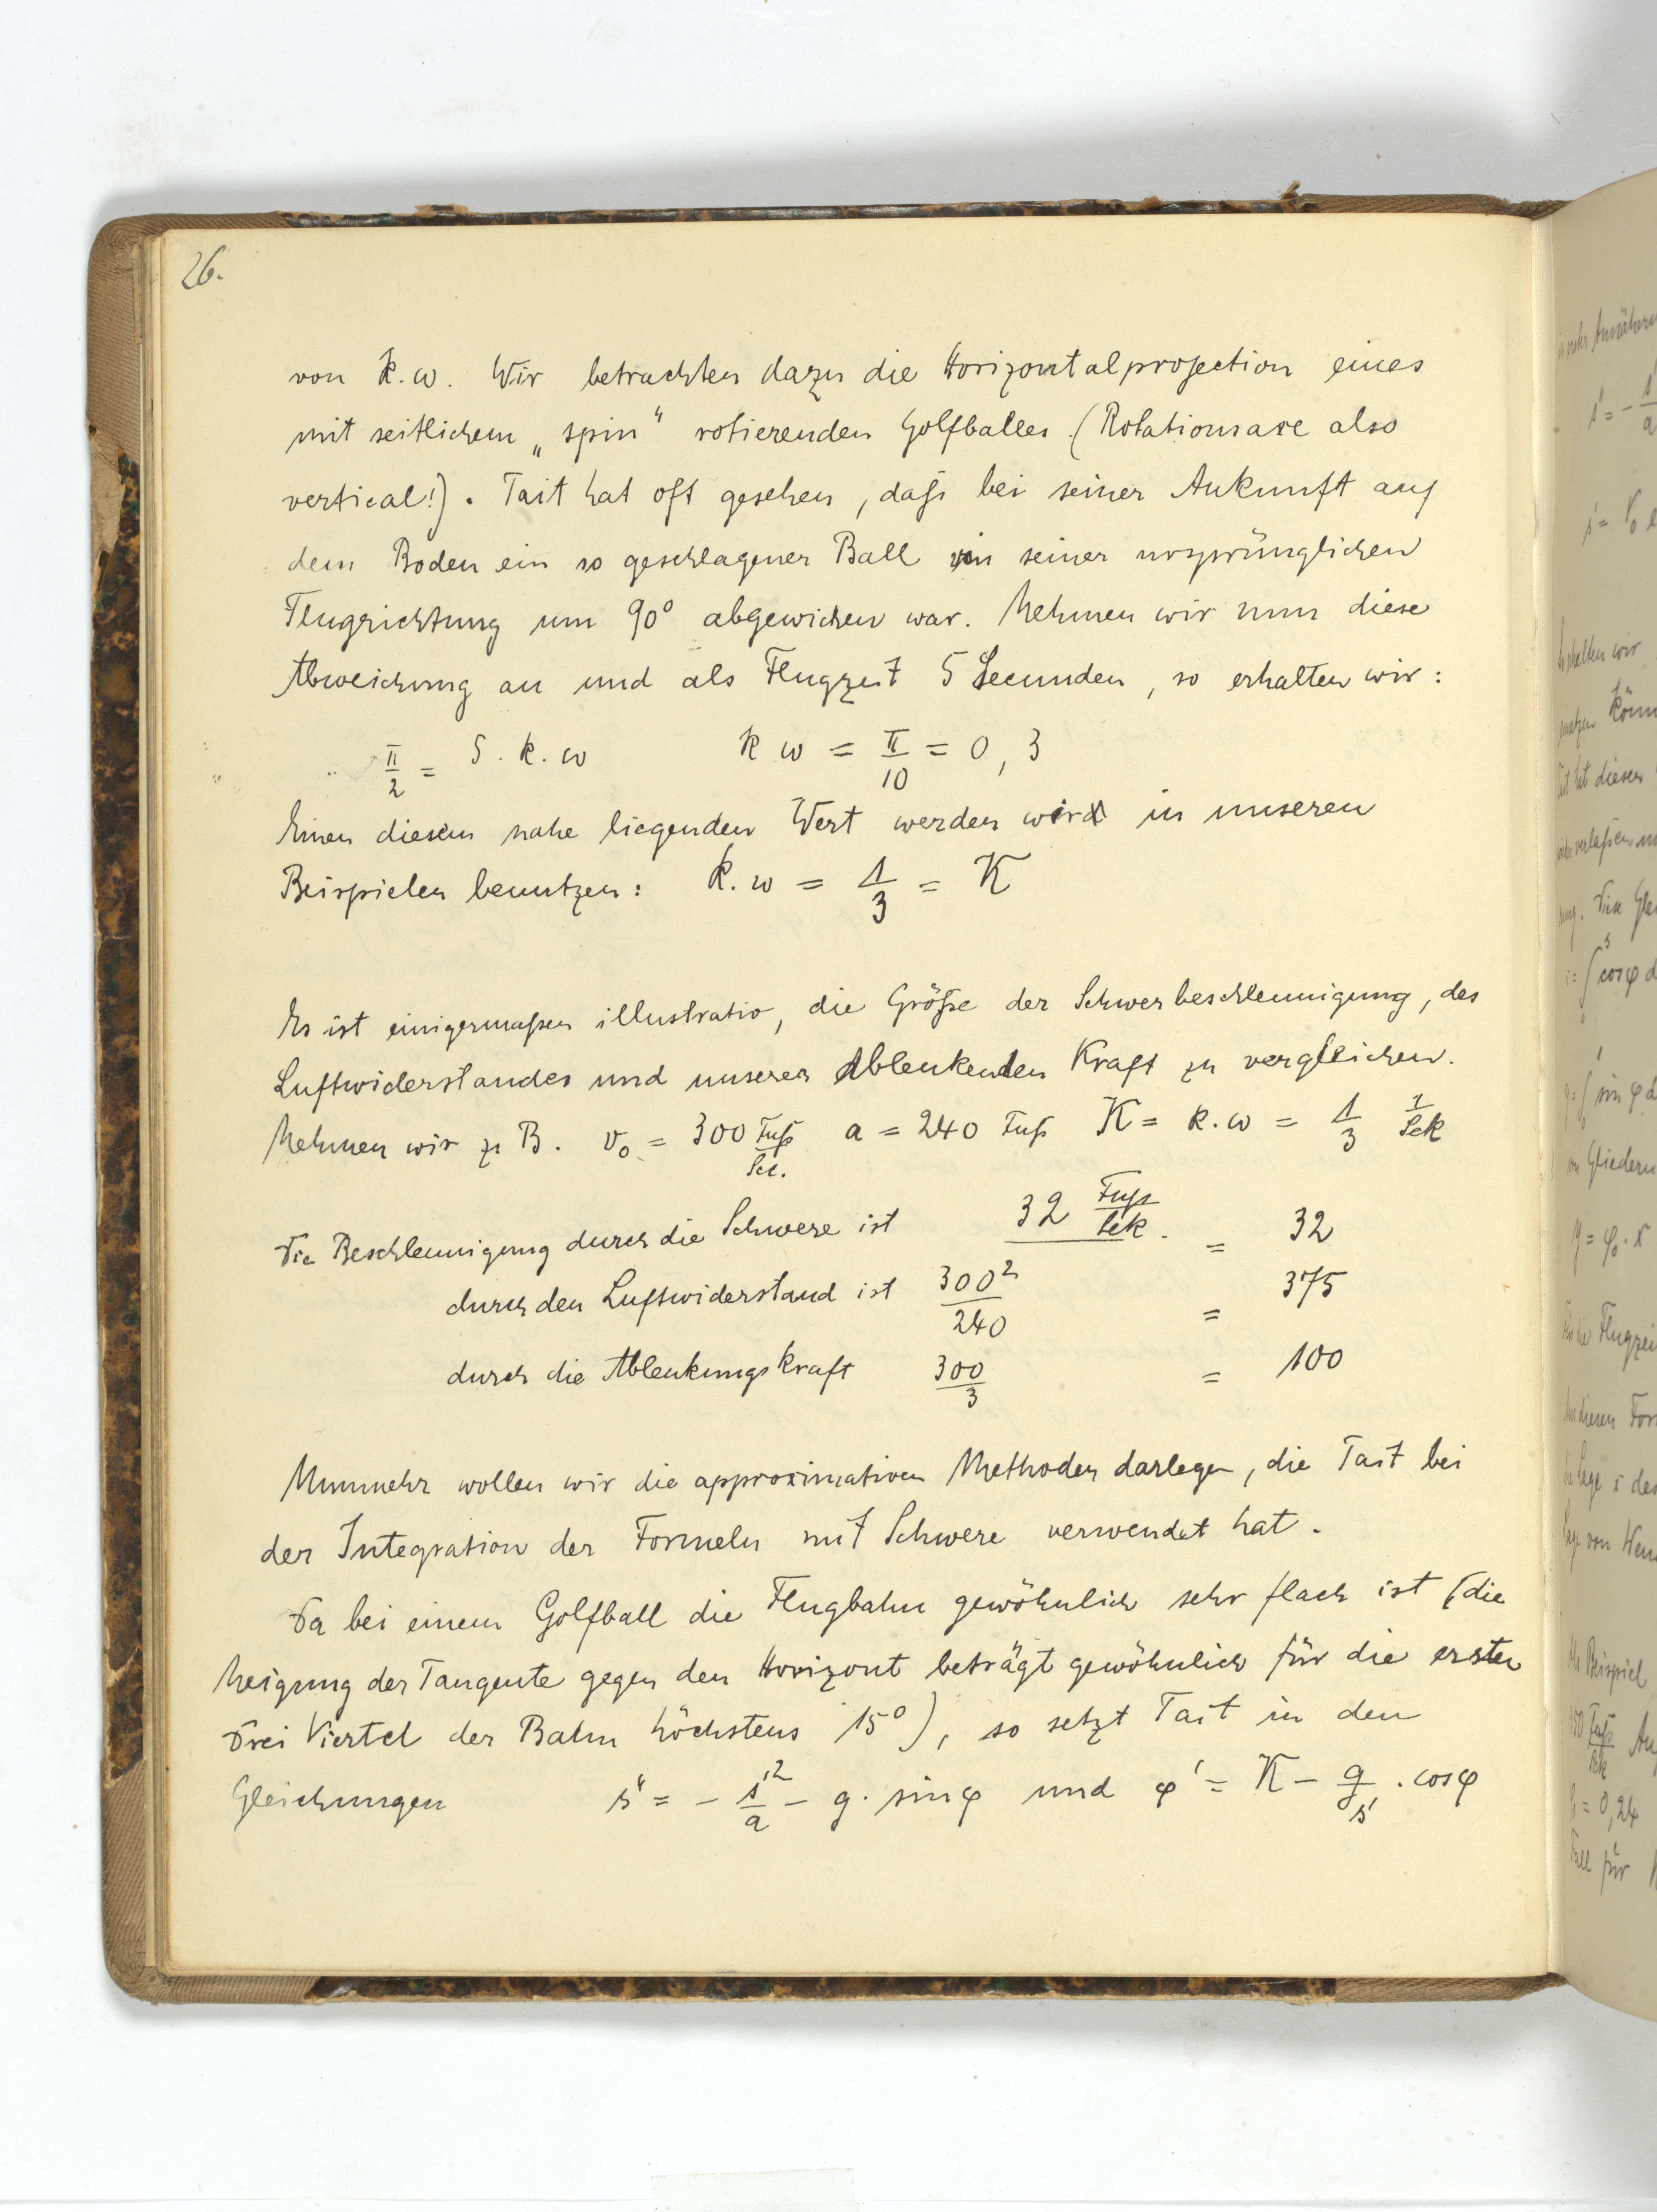 26.
von k.w. Wir betrachten dazu die Horizontalprojection eines
mit seitlichem „spin“ rotierenden Golfballes (Rotationsaxe also
vertical!). Tait hat oft gesehen, daß bei seiner Ankunft auf
dem Boden ein so geschlagener Ball von seiner ursprünglichen
Flugrichtung um 90° abgewichen war. Nehmen wir nun diese
Abweichung an und als Flugzeit 5 Secunden, so erhalten wir:
π/2 = 5.k.w k w = π/10 = 0,3
Einen diesem nahe liegenden Wert werden wir in unseren
Beispielen benutzen: k.w = 1/3 = K
Es ist einigermaßen illustrativ, die Größe der Schwerbeschleunigung, des
Luftwiderstandes und unserer Ablenkenden Kraft zu vergleichen.
Nehmen wir z B. v₀ = 300 Fuß/Sec. a = 240 Fuß K = k.w = 1/3 1/Sek
Die Beschleunigung durch die Schwere ist 32 Fuß/Sek. = 32
durch den Luftwiderstand ist 300²/240 = 375
durch die Ablenkungskraft 300/3 = 100
Nunmehr wollen wir die approximativen Methoden darlegen, die Tait bei
der Integration der Formeln mit Schwere verwendet hat.
Da bei einem Golfball die Flugbahn gewöhnlich sehr flach ist (die
Neigung der Tangente gegen den Horizont beträgt gewöhnlich für die ersten
Drei Viertel der Bahn höchstens 15°), so setzt Tait in den
Gleichungen s'' = - s'²/a - g. sin φ und φ' = K - g/s' . cos φ